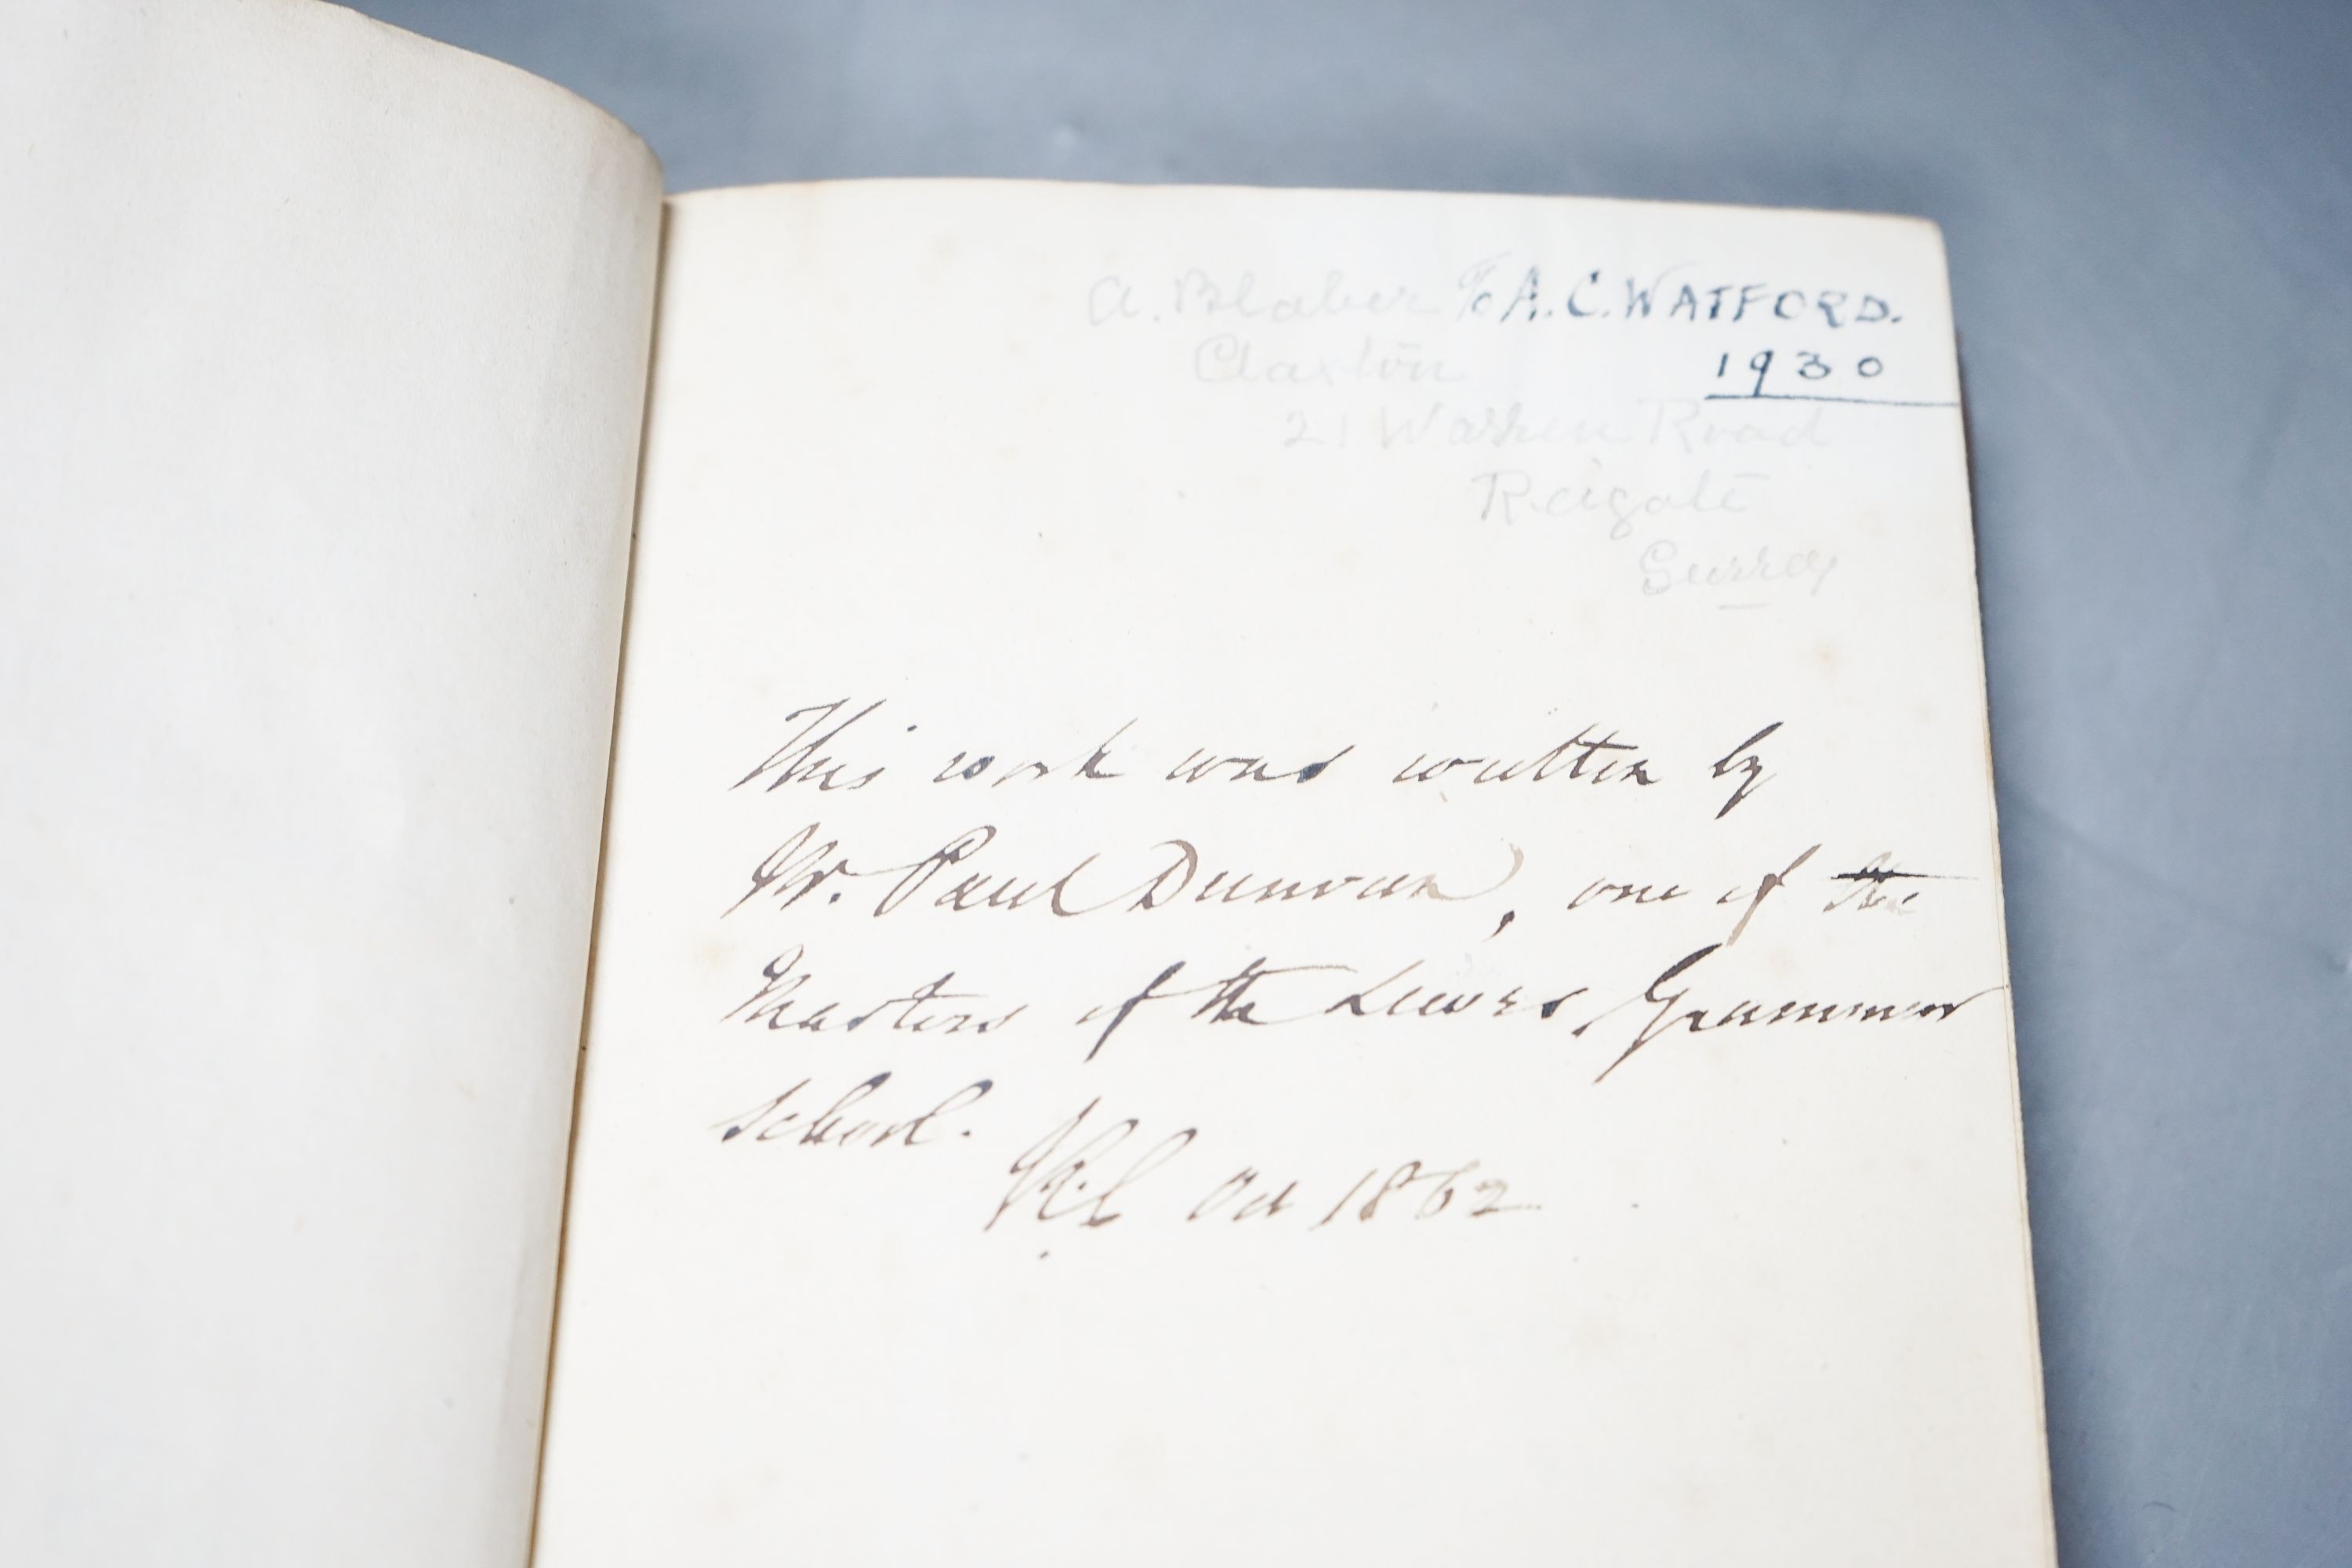 A. Blaber to A. C. WATFORD.
Claxton 1930
21 Warren Road
Reigate
Surrey
This work was written by
Mr. Paul Dunvan, one of the
Masters of the Lewes Grammar
School.
Oct 1862